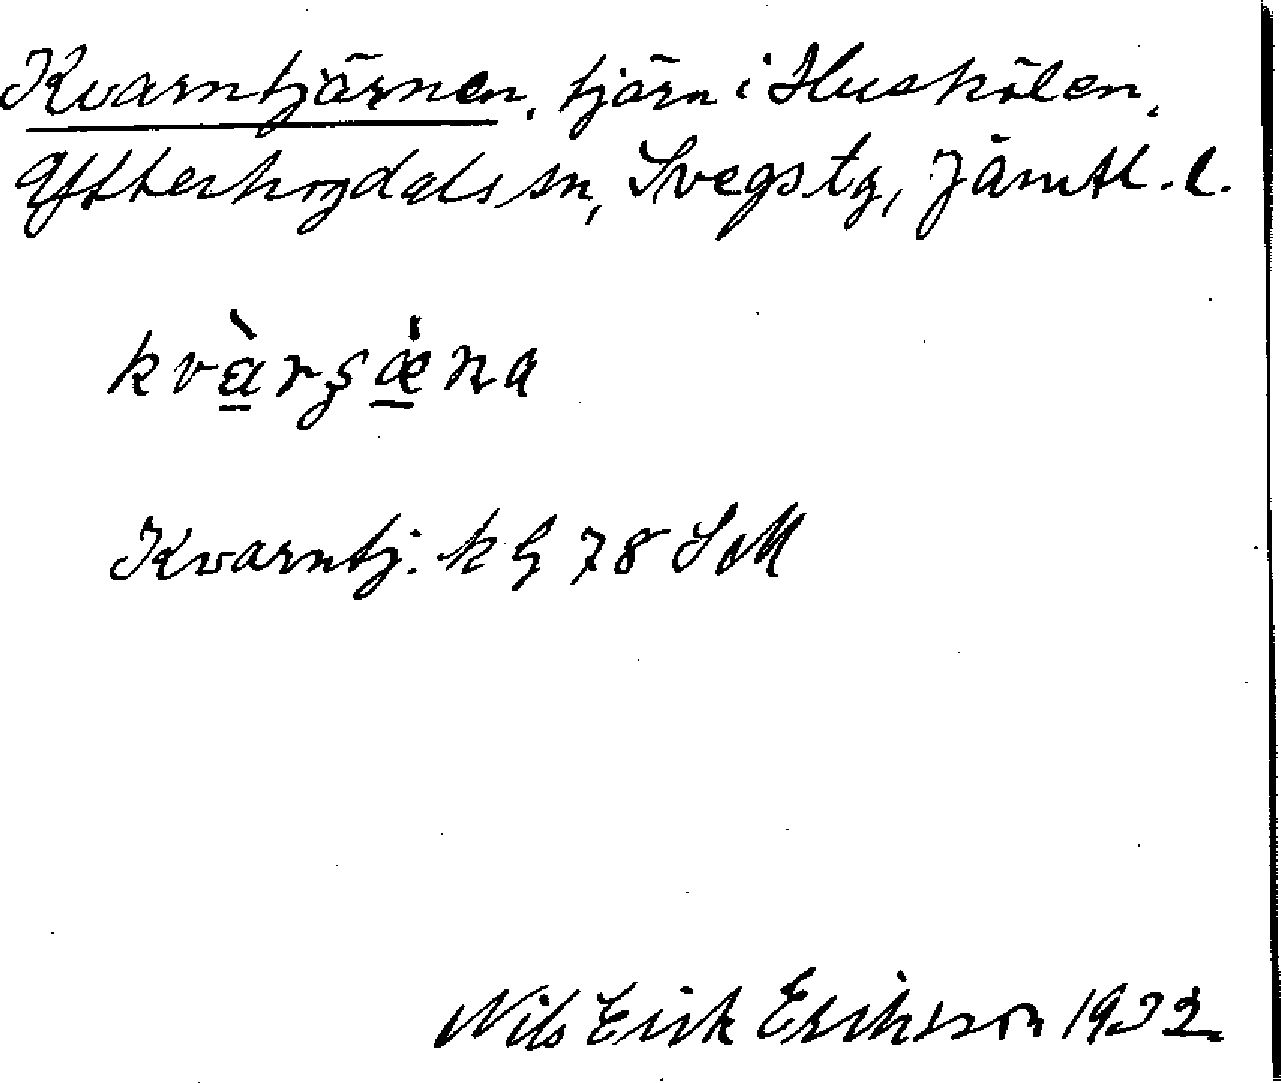 Kvarntjärnen, tjärn i Huskölen,
Ytterhogdals sn, Svegs tg, Jämtl. l.
kvàrʂæ̀na
Kvarntj. k G 78 SvM
Nils Erik Eriksson 1932